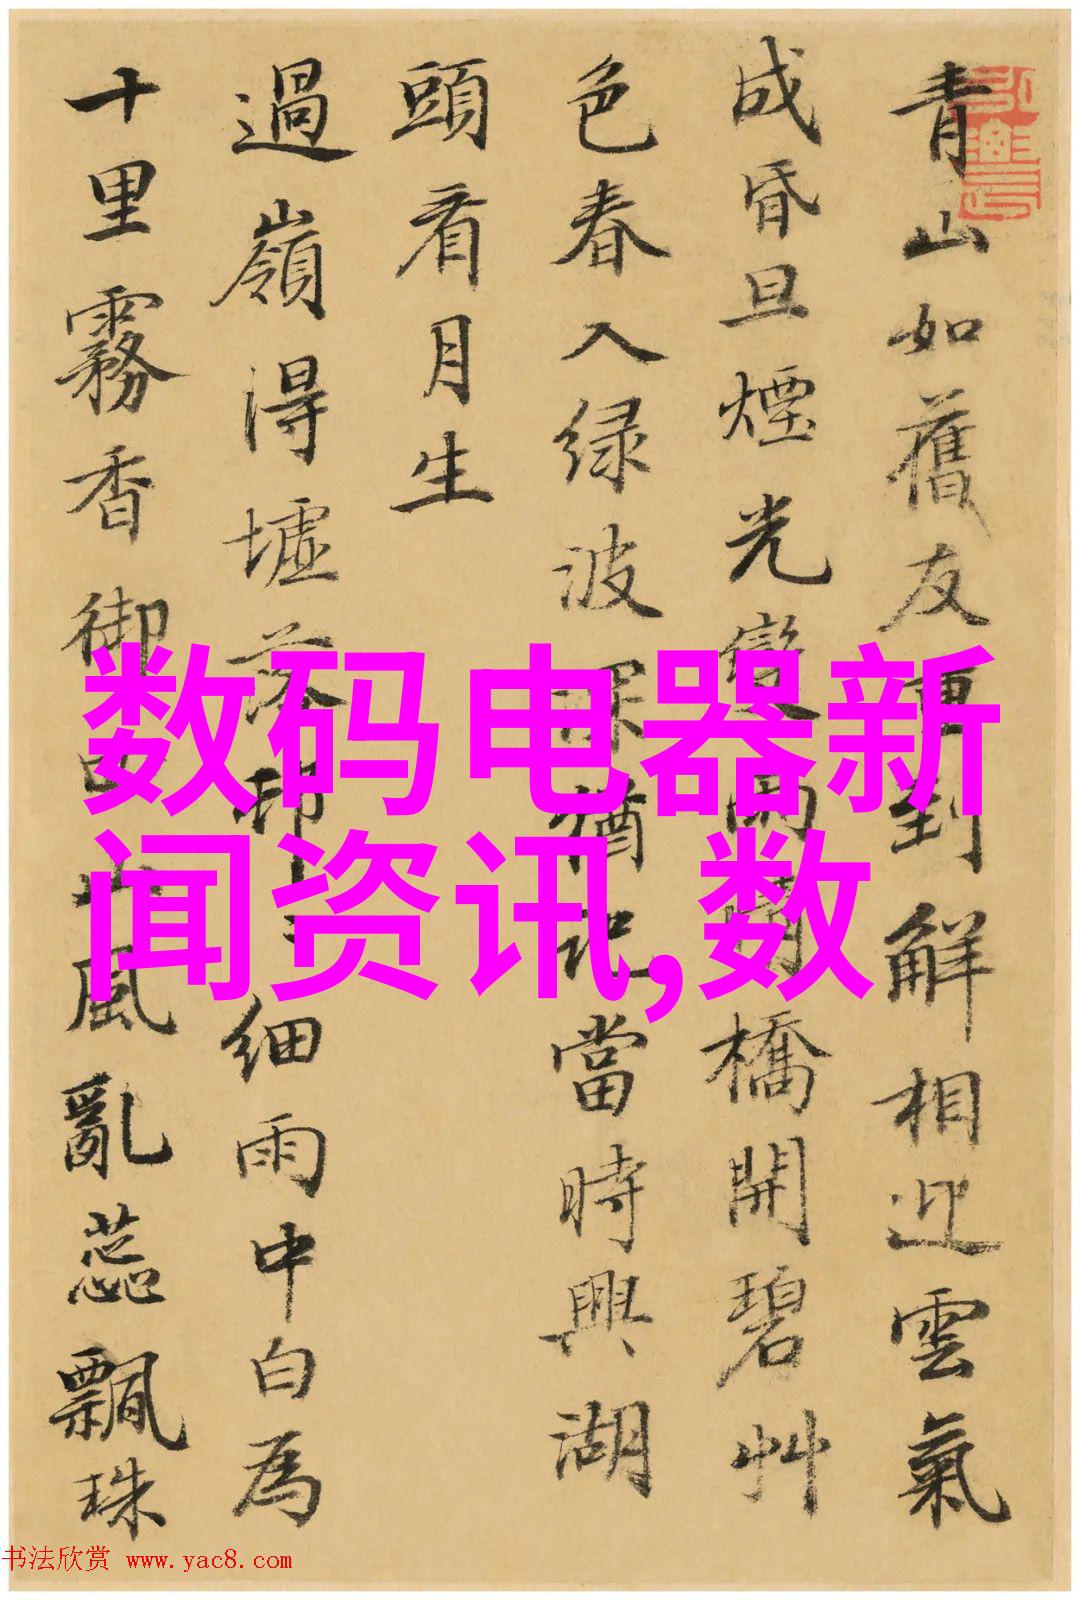 青山如舊友到解相迎雲氣
成昏旦煙光變橋開碧艸
色春入緑波深猶記當時興湖
頭看月生
過嶺得墟落細雨中白為
十里霧香御風亂蕊飄珠
数码电器新
闻资讯,数
书法欣赏 www.yac8.com